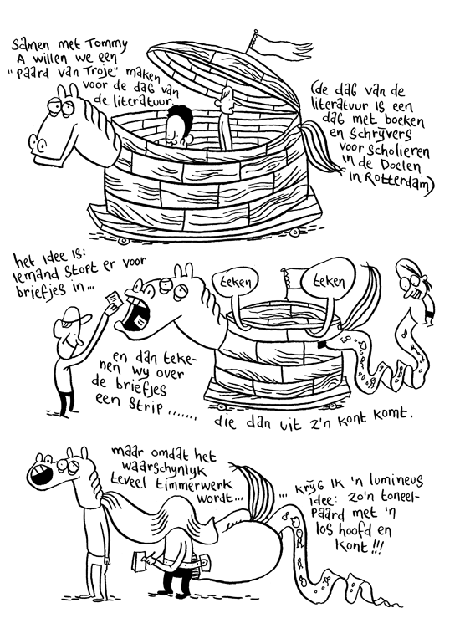 samen met Tommy
A willen we een
"paard van Troje" maken
voor de dag van
de literatuur
(de dag van de
literatuur is een
dag met boeken
en schrijvers
voor scholieren
in de Doelen
in Rotterdam)
het idee is:
iemand stopt er voor
briefjes in...
teken
teken
en dan teke-
nen wy over
de briefjes
een strip .......
die dan uit z'n kont komt.
maar omdat het
waarschynlyk
teveel timmerwerk
wordt...
... kryg ik 'n lumineus
idee: zo'n toneel-
paard met 'n
los hoofd en
kont!!!